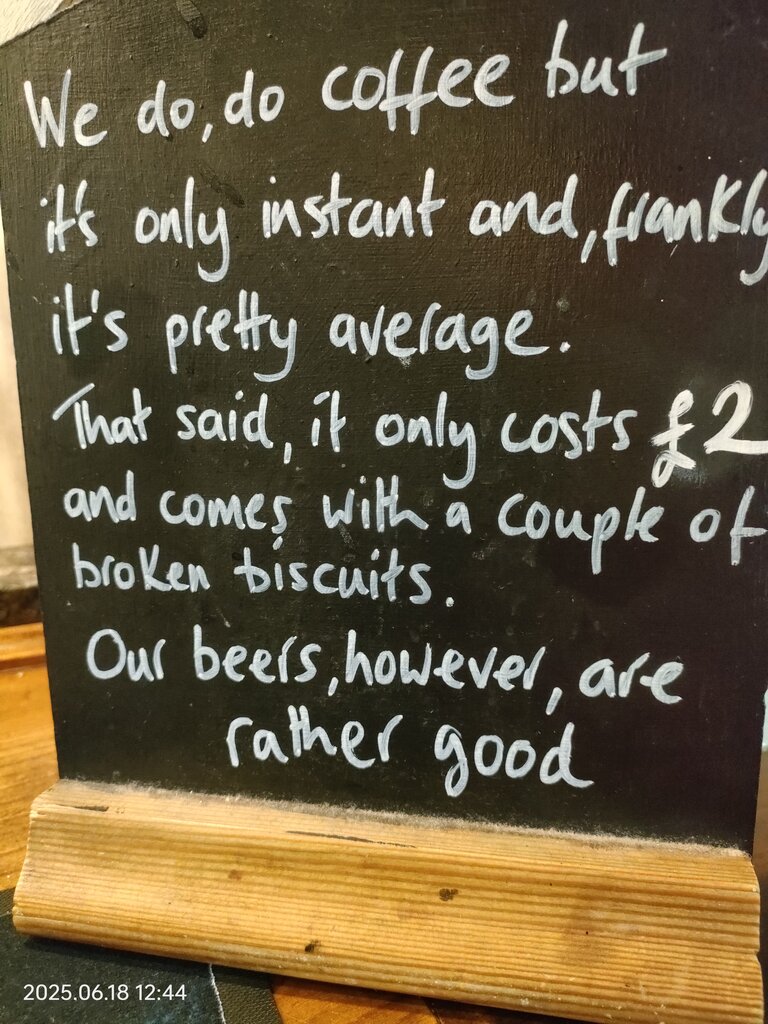 We do, do coffee but
it's only instant and, frankly
it's pretty average.
That said, it only costs £2
and comes with a couple of
broken biscuits.
Our beers, however, are
rather good
2025.06.18 12:44